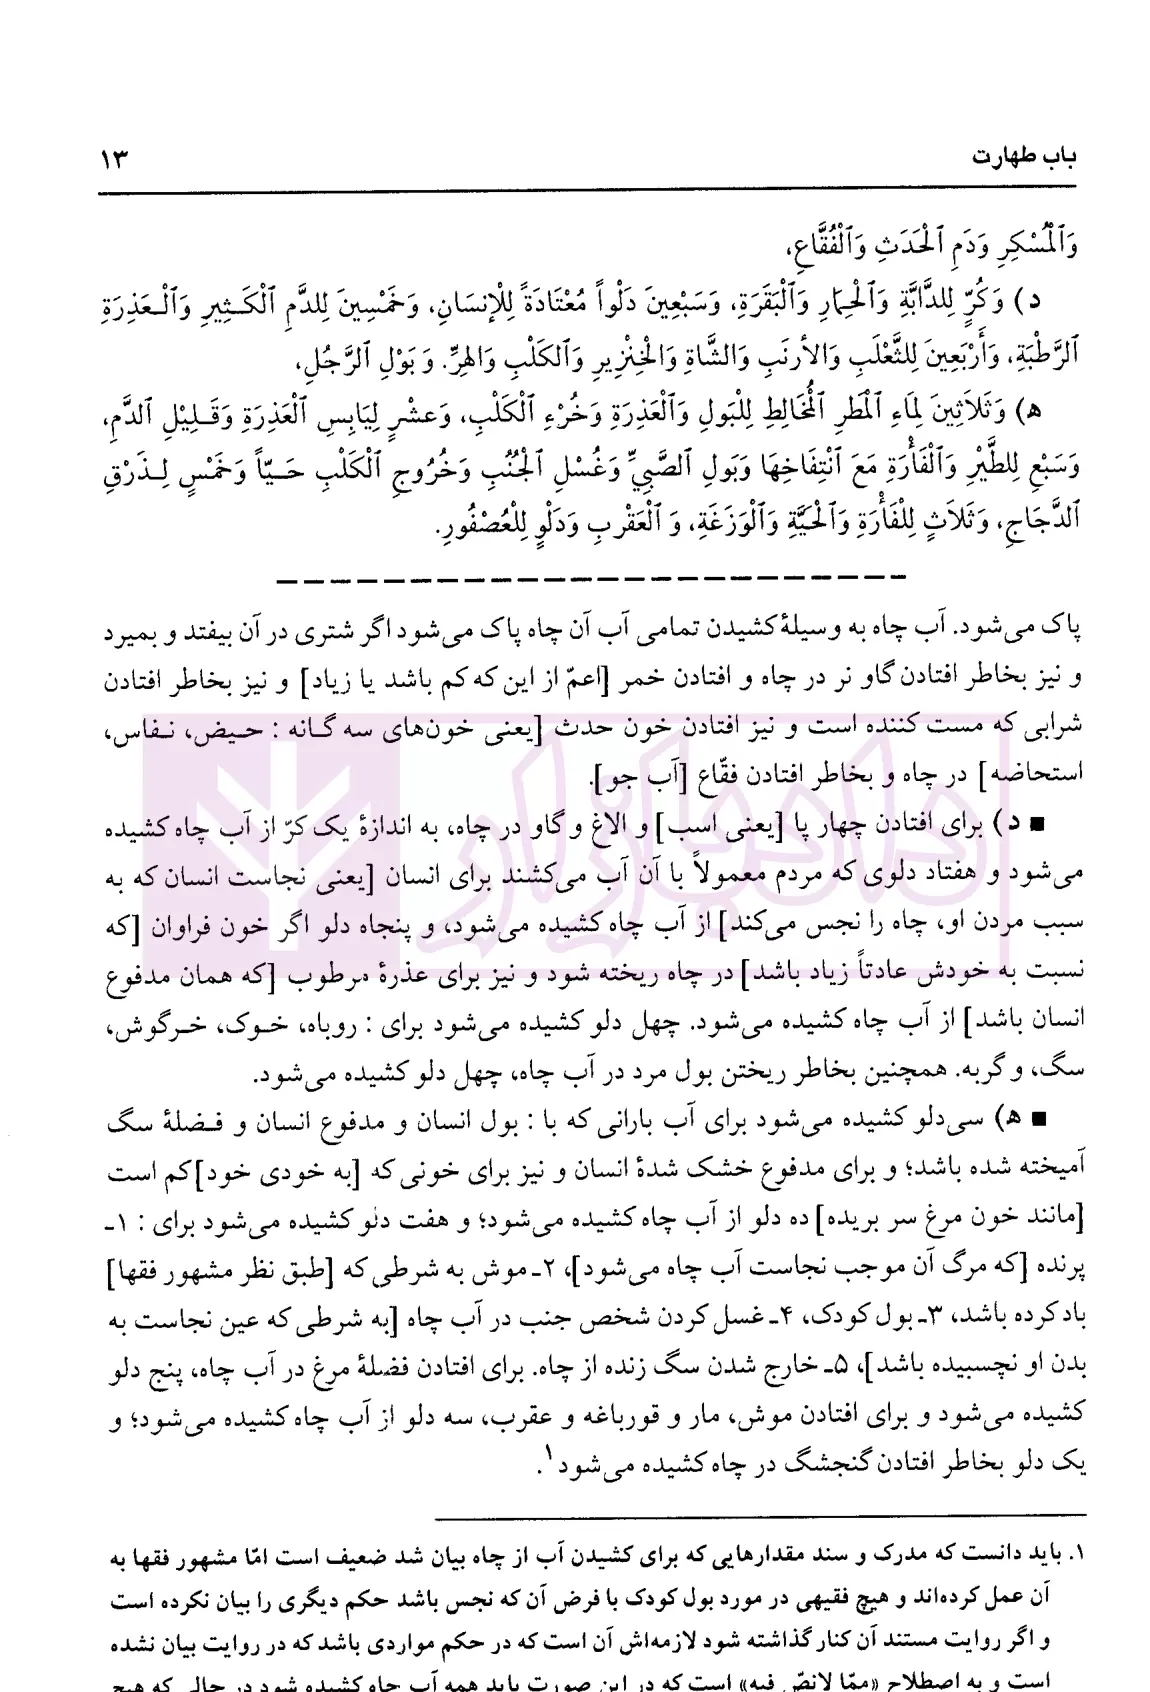 باب طهارت ۱۳
وَٱلْمُسْكِرِ وَدَمِ ٱلْحَدَثِ وَٱلْفُقَّاعِ،
د) وَكُرٍّ لِلدَّابَّةِ وَٱلْحِمَارِ وَٱلْبَقَرَةِ، وَسَبْعِينَ دَلْواً مُعْتَادَةً لِلْإنسَانِ، وَخَمْسِينَ لِلدَّمِ ٱلْكَـثِيرِ وَٱلْـعَذِرَةِ
ٱلرَّطْبَةِ، وَأَرْبَعِينَ لِلثَّعْلَبِ وَالأرنَبِ وَالشَّاةِ وَالْخِنْزِيرِ وَٱلكَلْبِ وَالهِرِّ. وَ بَوْلِ ٱلرَّجُلِ،
ه) وَثَلاَثِينَ لِمَاءِ ٱلْمَطَرِ ٱلْمُخَالِطِ لِلْبَولِ وَٱلْعَذِرَةِ وَخُرْءِ ٱلْكَلْبِ، وَعشْرٍ لِيَابِسِ ٱلْعَذِرَةِ وَقَـلِيْلِ ٱلدَّمِ،
وَسَبْعِ لِلطَّيْرِ وَٱلْفَأْرَةِ مَعَ ٱنْتِفَاخِهَا وَبَولِ ٱلصَّبِيِّ وَغُسْلِ ٱلْجُنُبِ وَخُرُوجِ ٱلْكَلْبِ حَـيّاً وَخَمْسٍ لِـذَرْقِ
ٱلدَّجَاجِ، وَثَلاَثٍ لِلْفَأْرَةِ وَٱلْحَيَّةِ وَٱلْوَزَغَةِ، وَ ٱلْعَقْرَبِ وَدَلوٍ لِلْعُصْفُورِ.
پاک می‌شود. آب چاه به وسیلهٔ کشیدن تمامی آب آن چاه پاک می‌شود اگر شتری در آن بیفتد و بمیرد
و نیز بخاطر افتادن گاو نر در چاه و افتادن خمر [اعمّ از این که کم باشد یا زیاد] و نیز بخاطر افتادن
شرابی که مست کننده است و نیز افتادن خون حدث [یعنی خون‌های سه گـانه : حـیض، نـفاس،
استحاضه] در چاه و بخاطر افتادن فقّاع [آب جو].
■ د) برای افتادن چهار پا [یعنی اسب] و الاغ و گاو در چاه، به اندازهٔ یک کرّ از آب چاه کشیده
می‌شود و هفتاد دلوی که مردم معمولاً با آن آب می‌کشند برای انسان [یعنی نجاست انسان که به
سبب مردن او، چاه را نجس می‌کند] از آب چاه کشیده می‌شود، و پنجاه دلو اگر خون فراوان [که
نسبت به خودش عادتاً زیاد باشد] در چاه ریخته شود و نیز برای عذرهٔ مرطوب [که همان مدفوع
انسان باشد] از آب چاه کشیده می‌شود. چهل دلو کشیده می‌شود برای : روباه، خـوک، خـرگوش،
سگ، و گربه. همچنین بخاطر ریختن بول مرد در آب چاه، چهل دلو کشیده می‌شود.
■ ه) سی‌دلو کشیده می‌شود برای آب بارانی که با : بول انسان و مدفوع انسان و فـضلهٔ سگ
آمیخته شده باشد؛ و برای مدفوع خشک شدهٔ انسان و نیز برای خونی که [به خودی خود] کم است
[مانند خون مرغ سر بریده] ده دلو از آب چاه کشیده می‌شود؛ و هفت دلو کشیده می‌شود برای : ۱ـ
پرنده [که مرگ آن موجب نجاست آب چاه می‌شود]، ۲ـ موش به شرطی که [طبق نظر مشهور فقها]
باد کرده باشد، ۳ـ بول کودک، ۴ـ غسل کردن شخص جنب در آب چاه [به شرطی که عین نجاست به
بدن او نچسبیده باشد]، ۵ـ خارج شدن سگ زنده از چاه. برای افتادن فضلهٔ مرغ در آب چاه، پنج دلو
کشیده می‌شود و برای افتادن موش، مار و قورباغه و عقرب، سه دلو از آب چاه کشیده می‌شود؛ و
یک دلو بخاطر افتادن گنجشگ در چاه کشیده می‌شود۱.
۱. باید دانست که مدرک و سند مقدارهایی که برای کشیدن آب از چاه بیان شد ضعیف است امّا مشهور فقها به
آن عمل کرده‌اند و هیچ فقیهی در مورد بول کودک با فرض آن که نجس باشد حکم دیگری را بیان نکرده است
و اگر روایت مستند آن کنار گذاشته شود لازمه‌اش آن است که در حکم مواردی باشد که در روایت بیان نشده
است و به اصطلاح «ممّا لانصّ فیه» است که در این صورت باید همه آب چاه کشیده شود در حالی که هیچ
دادبازار